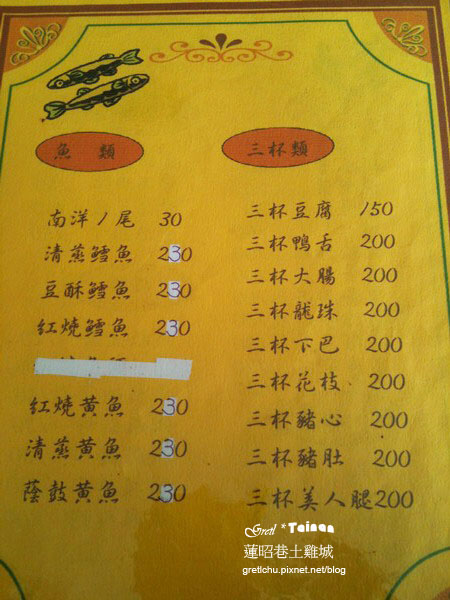 魚 類
南洋1尾 30
清蒸鱈魚 230
豆酥鱈魚 230
紅燒鱈魚 230
紅燒黃魚 230
清蒸黃魚 230
蔭鼓黃魚 230
三杯類
三杯豆腐 150
三杯鴨舌 200
三杯大腸 200
三杯龍珠 200
三杯下巴 200
三杯花枝 200
三杯豬心 200
三杯豬肚 200
三杯美人腿200
Gretl *Tainan
蓮昭巷土雞城
gretlchu.pixnet.net/blog